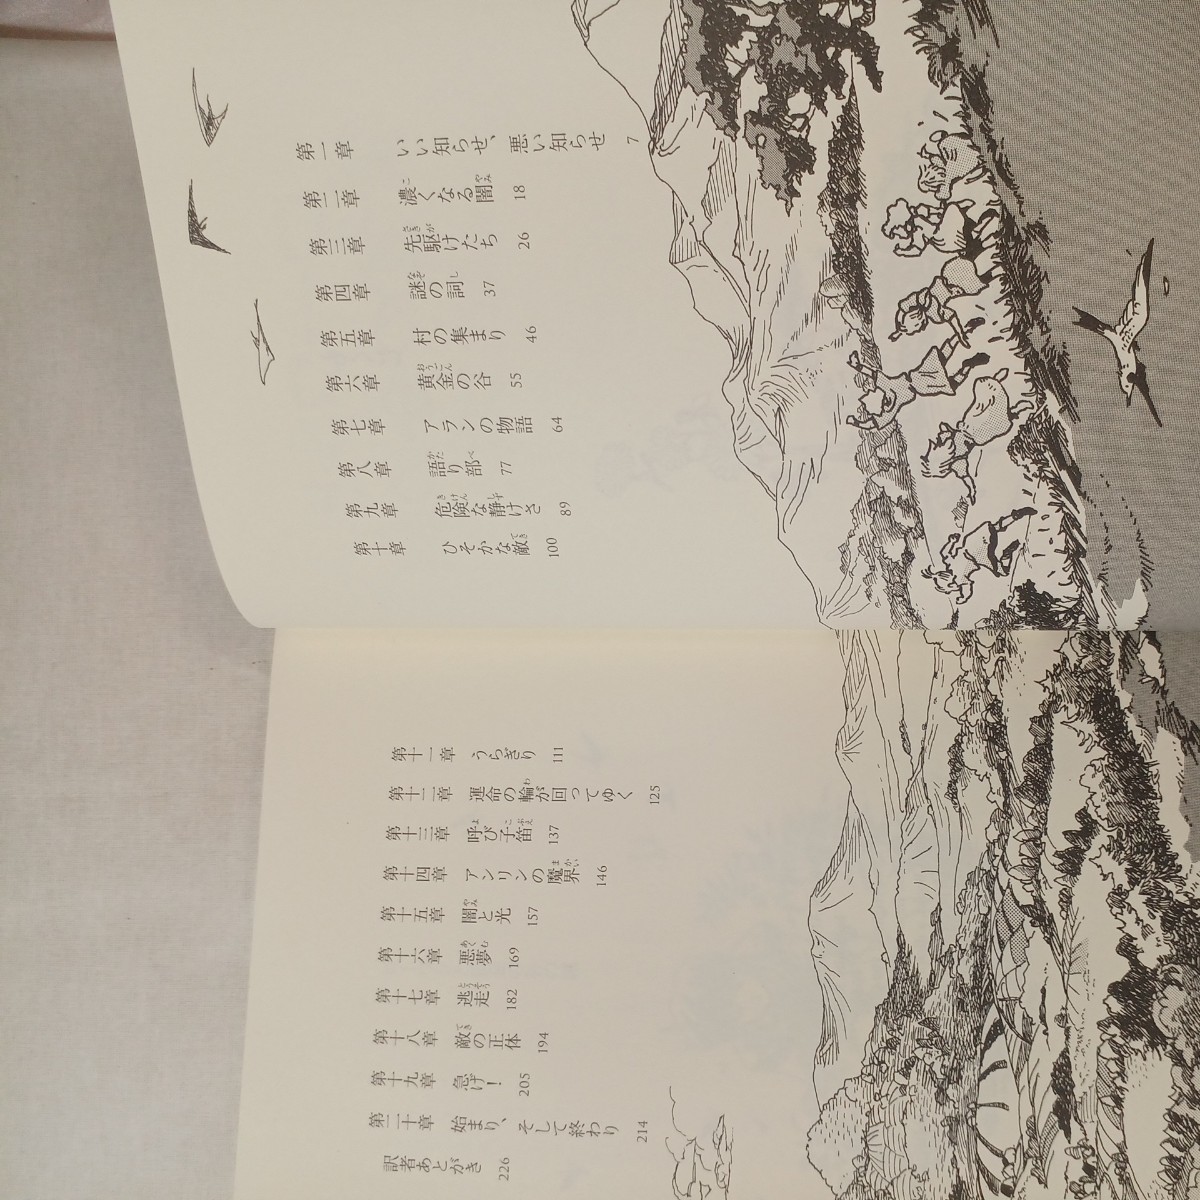 第一章 いい知らせ、悪い知らせ 7
第二章 濃くなる闇 18
第三章 先駆けたち 26
第四章 謎の詞 37
第五章 村の集まり 46
第六章 黄金の谷 55
第七章 アランの物語 64
第八章 語り部 77
第九章 危険な静けさ 89
第十章 ひそかな敵 100
第十一章 うらぎり 111
第十二章 運命の輪が回ってゆく 125
第十三章 呼び子笛 137
第十四章 アンリンの魔界 146
第十五章 闇と光 157
第十六章 悪夢 169
第十七章 逃走 182
第十八章 敵の正体 194
第十九章 急げ！ 205
第二十章 始まり、そして終わり 214
訳者あとがき 226